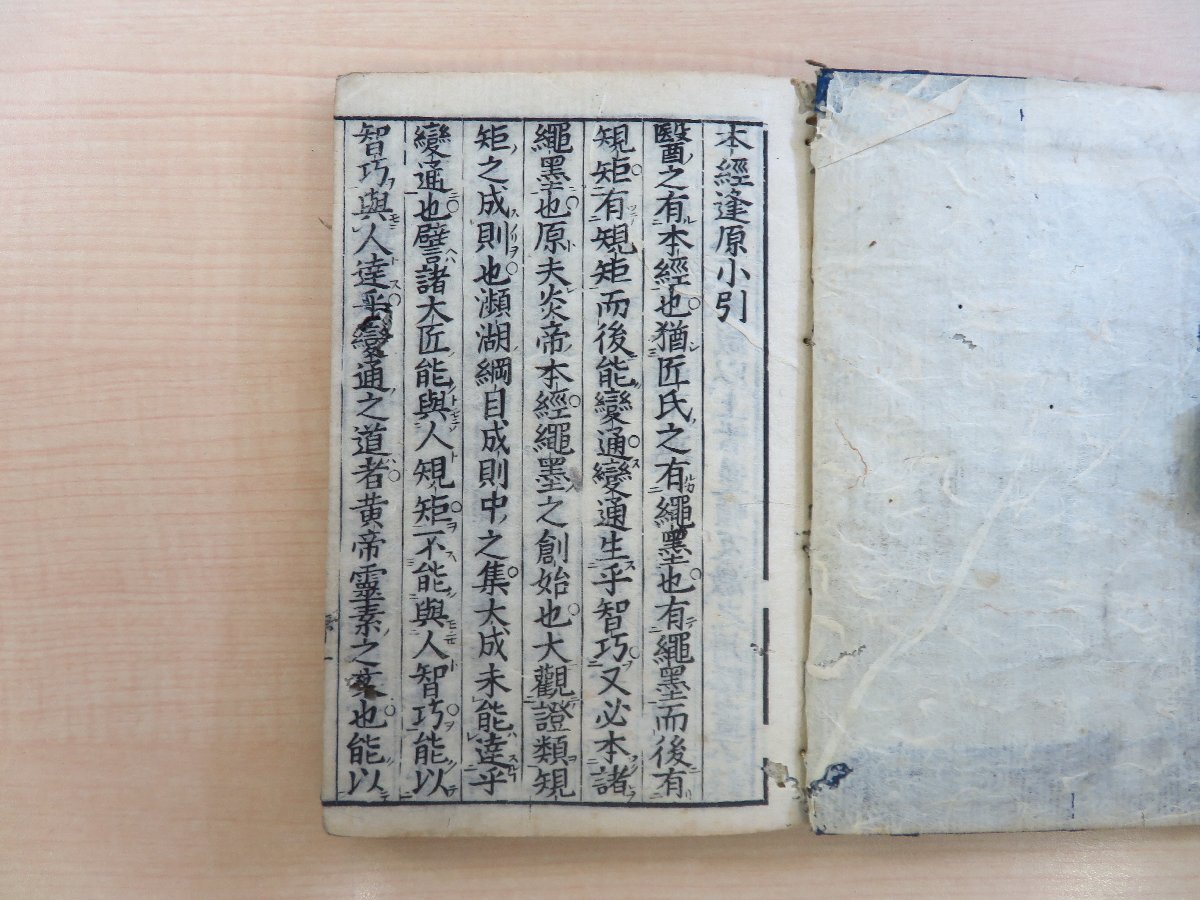 本經逢原小引
醫之有本經也猶匠氏之有繩墨也有繩墨而後有
規矩有規矩而後能變通變通生乎智巧又必本諸
繩墨也原夫炎帝本經繩墨之創始也大觀證類規
矩之成則也瀕湖綱目成則中之集大成未能達乎
變通也譬諸大匠能與人規矩不能與人智巧能以
智巧與人達乎變通之道者黄帝靈素之文也能以